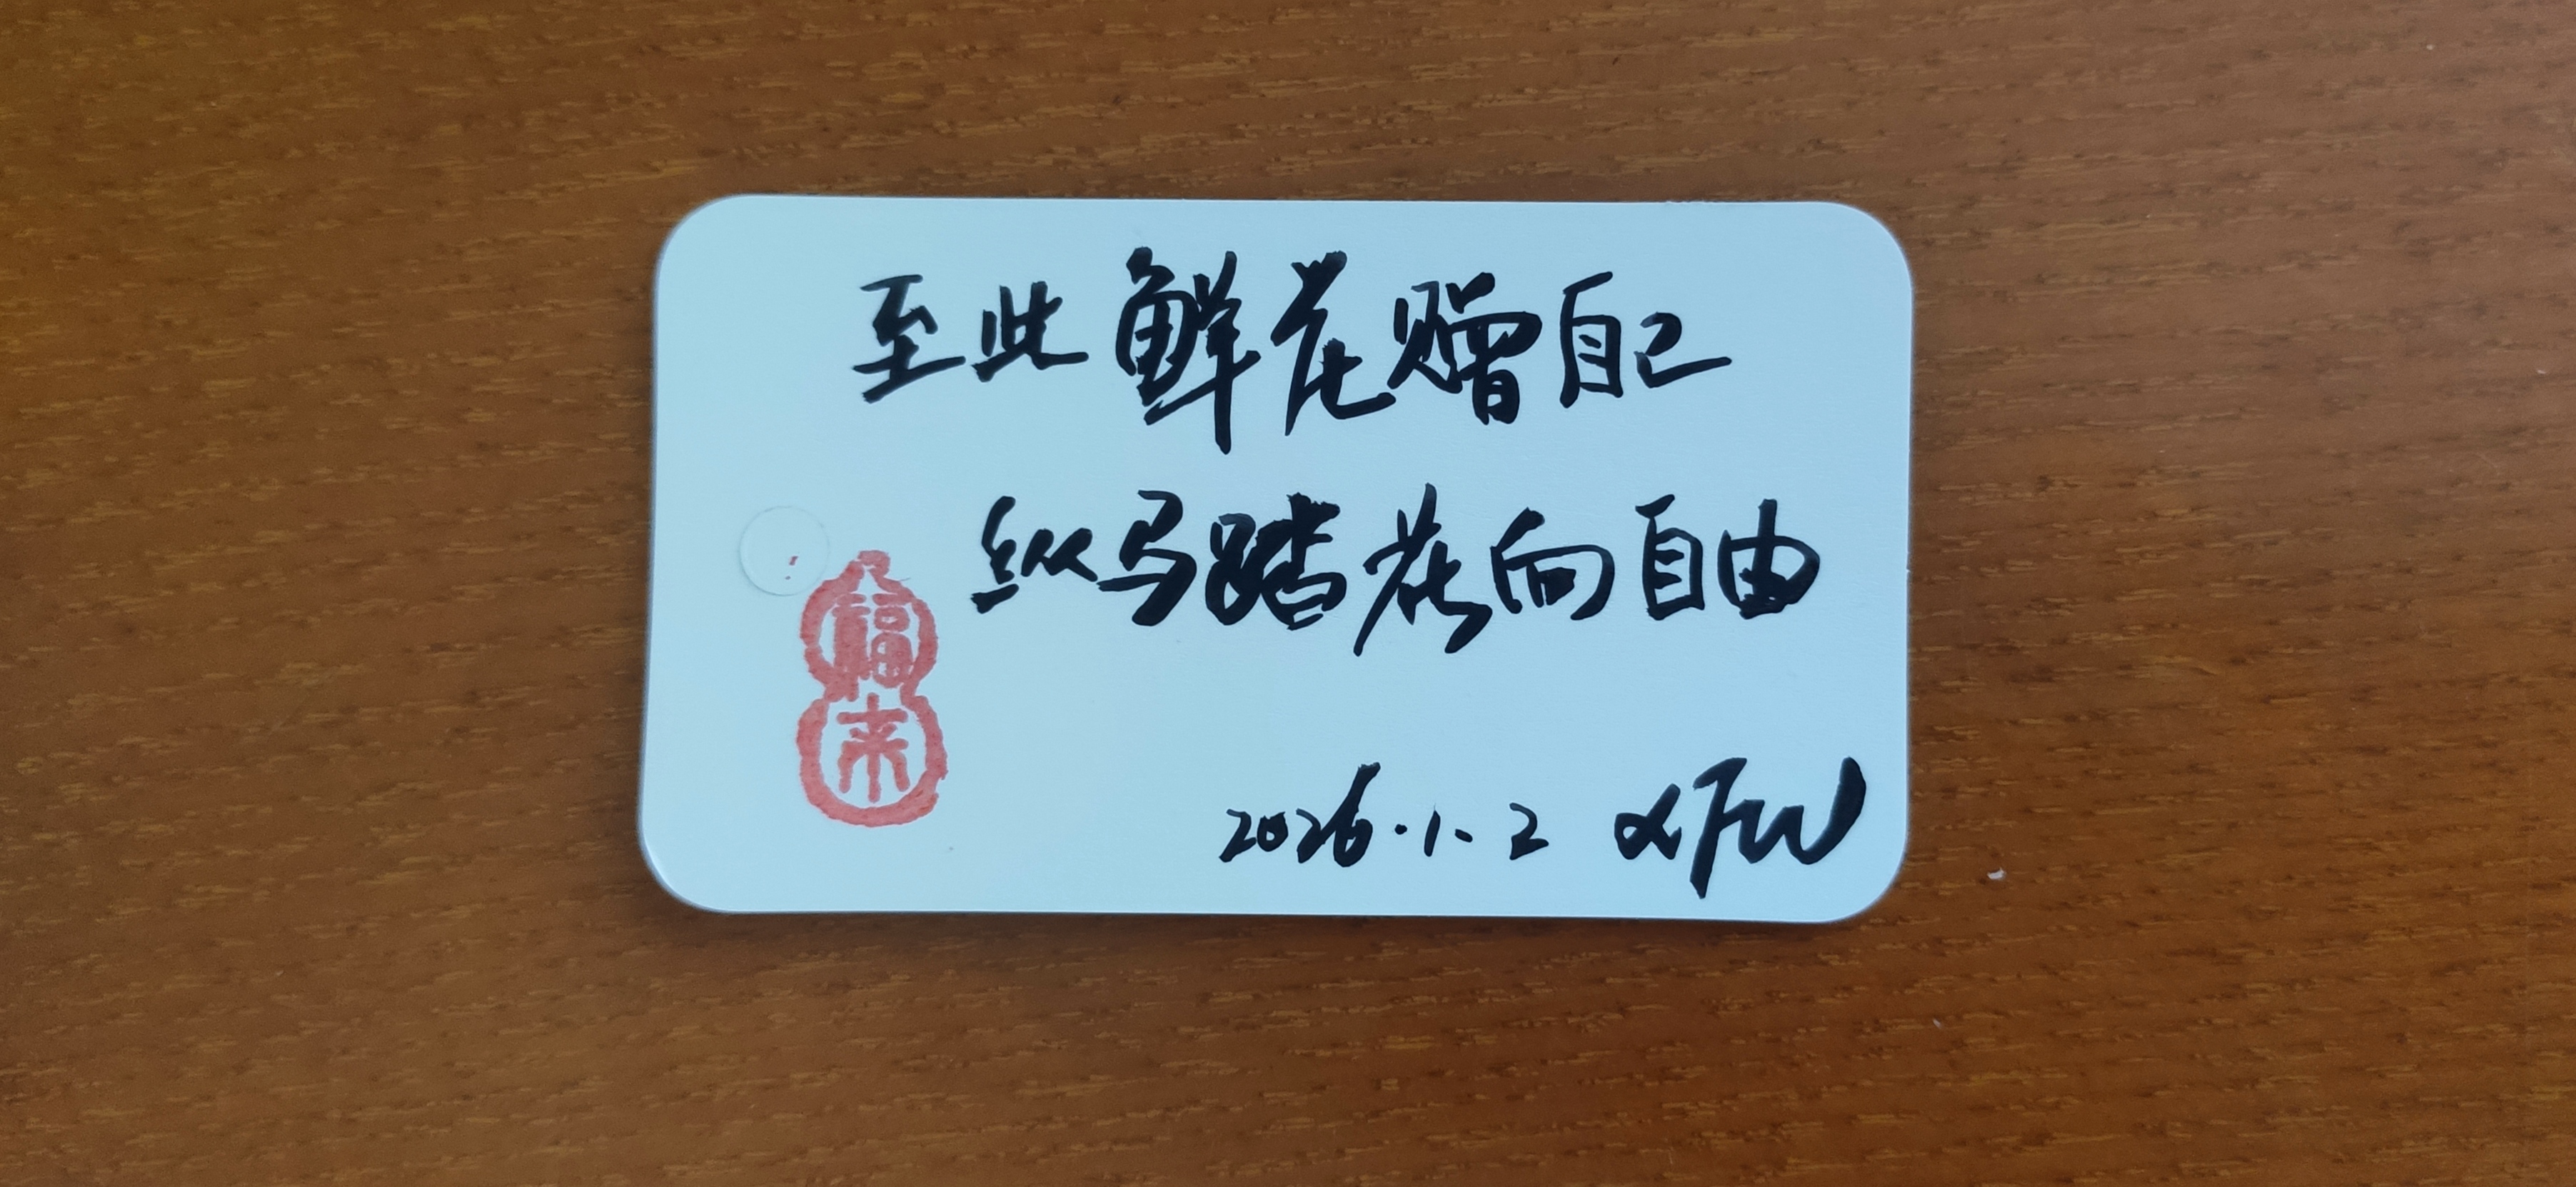 至此鲜花赠自己
纵马踏花向自由
福来
2026.1.2 XFW